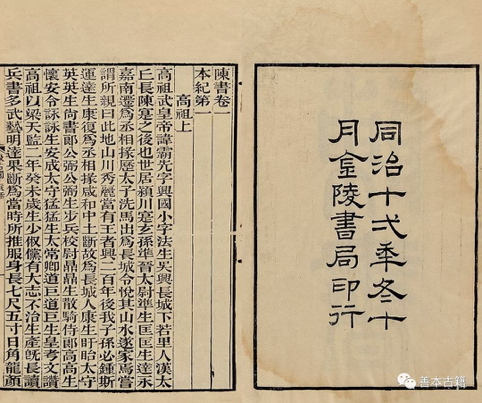 同治十弍年冬十
月金陵書局印行
陳書卷一
本紀第一
高祖上
高祖武皇帝諱霸先字興國小字法生吳興長城下若里人漢太
丘長陳寔之後也世居潁川寔玄孫準晉太尉準生匡匡生達永
嘉南遷爲丞相掾歷太子洗馬出爲長城令悅其山水遂家焉嘗
謂所親曰此地山川秀麗當有王者興二百年後我子孫必鍾斯
運達生康復爲丞相掾咸和中土斷故爲長城人康生盱眙太守
英英生尚書郎公弼公弼生步兵校尉鼎鼎生散騎侍郎高高生
懷安令詠詠生安成太守猛猛生太常卿道巨道巨生皇考文讚
高祖以梁天監二年癸未歲生少俶儻有大志不治生產旣長讀
兵書多武藝明達果斷爲當時所推服身長七尺五寸日角龍顏
善本古籍